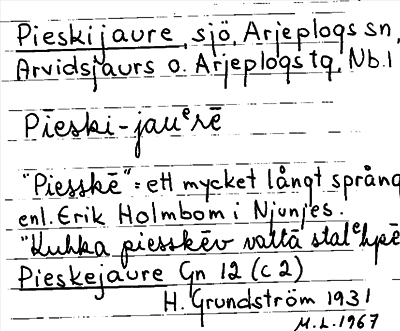 Pieskijaure, sjö, Arjeplogs sn,
Arvidsjaurs o. Arjeplogs tg, Nb.l
Pieski-jauᵉrē
"Piesskē" = ett mycket långt språng
enl. Erik Holmbom i Njunjes.
"Kuhka piesskēv valta stalᵉhpē
Pieskejaure Gn 12 (c 2)
H. Grundström 1931
M.L. 1967